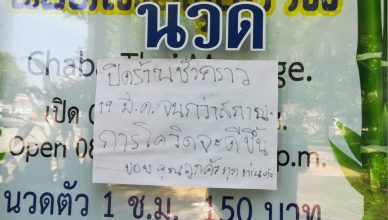 นวด
Chaba Thai Massage.
ปิดร้านชั่วคราว
19 มี.ค. จนกว่าสภานะ
การโควิดจะดีขึ้น
ขอบคุณลูกค้าทุกท่านค่ะ
เปิด 0
Open 08
p.m.
นวดตัว 1 ช.ม. 150 บาท